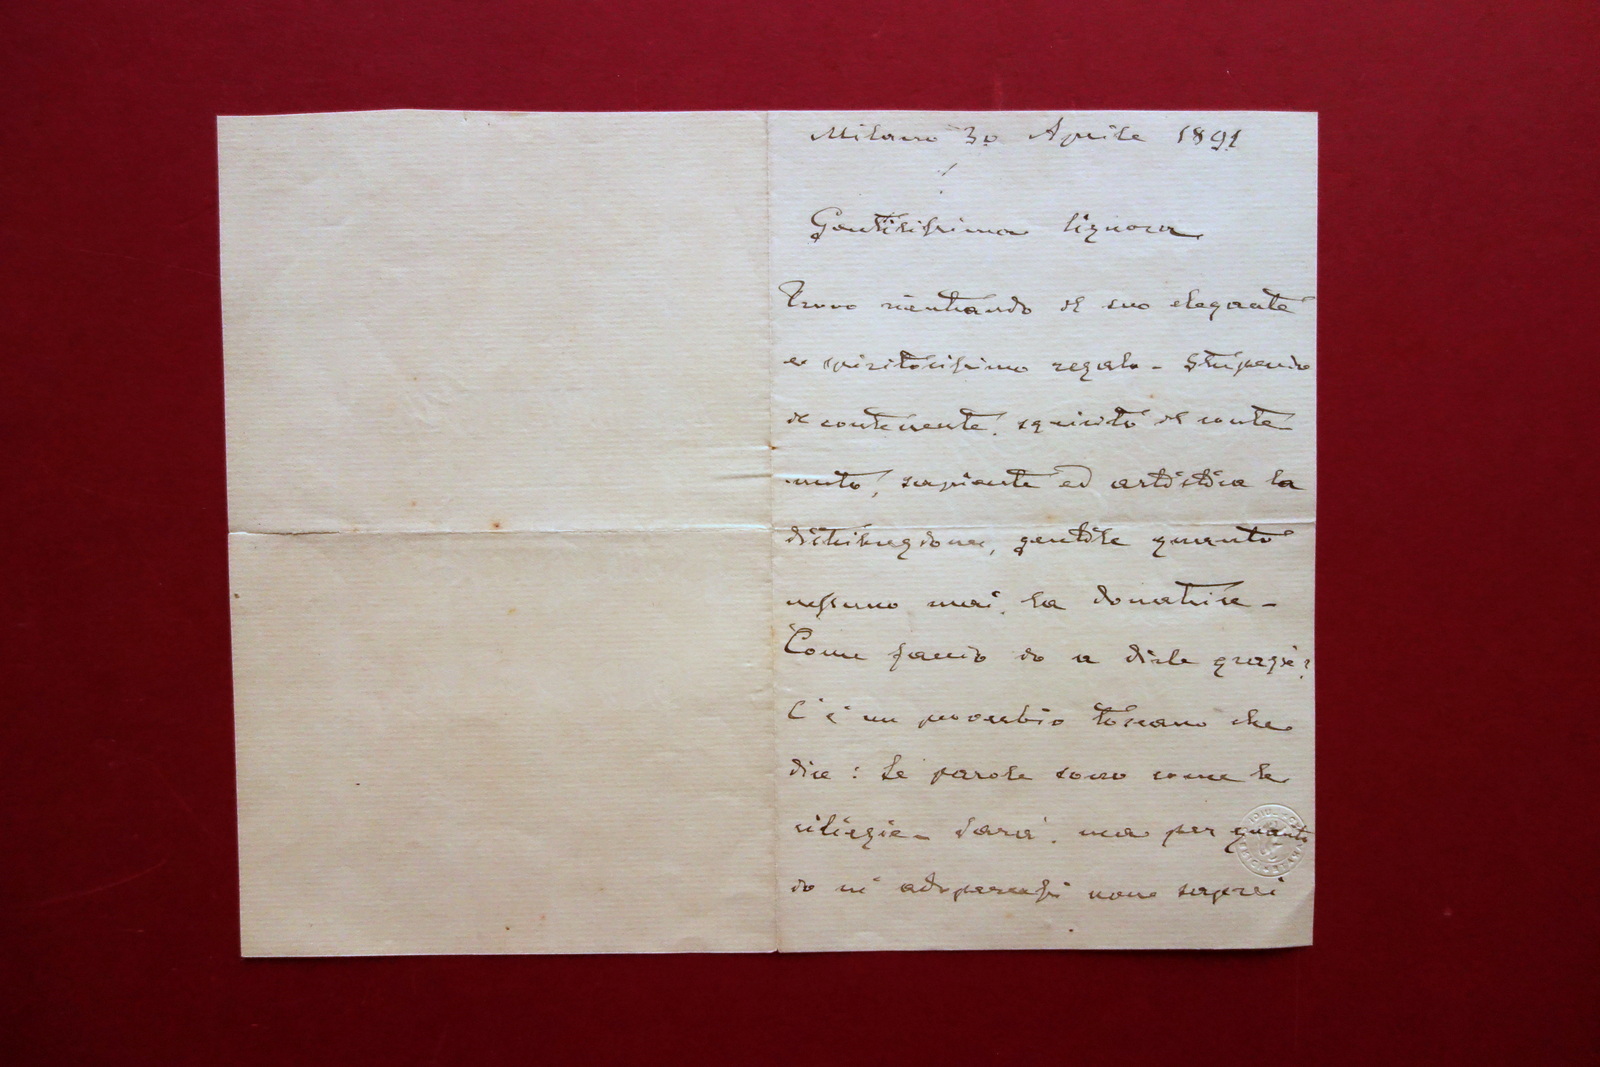 Milano 30 Aprile 1891
Gentilissima Signora
Trovo rientrando il suo elegante
e spiritosissimo regalo - Stupendo
il contenente, squisito il conte
nuto, sapiente ed artistica la
distribuzione, gentile quanto
nessuno mai, la donatrice -
Come faccio io a dirle grazie?
C'è un proverbio toscano che
dice : Le parole sono come le
ciliegie - Sarà, ma per quanto
io mi adoperassi non saprei